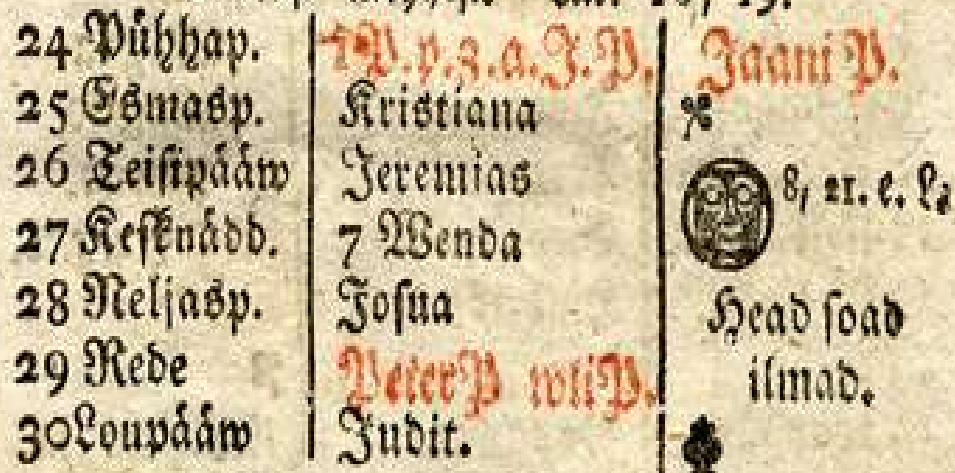 24 Pühhap. P.p.3.a.J.P. Jaani P.
25 Esmasp. Kristiana
26 Teisipääw Jeremias 8, 21. e. L.
27 Keſknädd. 7 Wenda
28 Neljasp. Joſua Head ſoad
29 Rede Peter P wliP. ilmad.
30 Loupääw Judit.